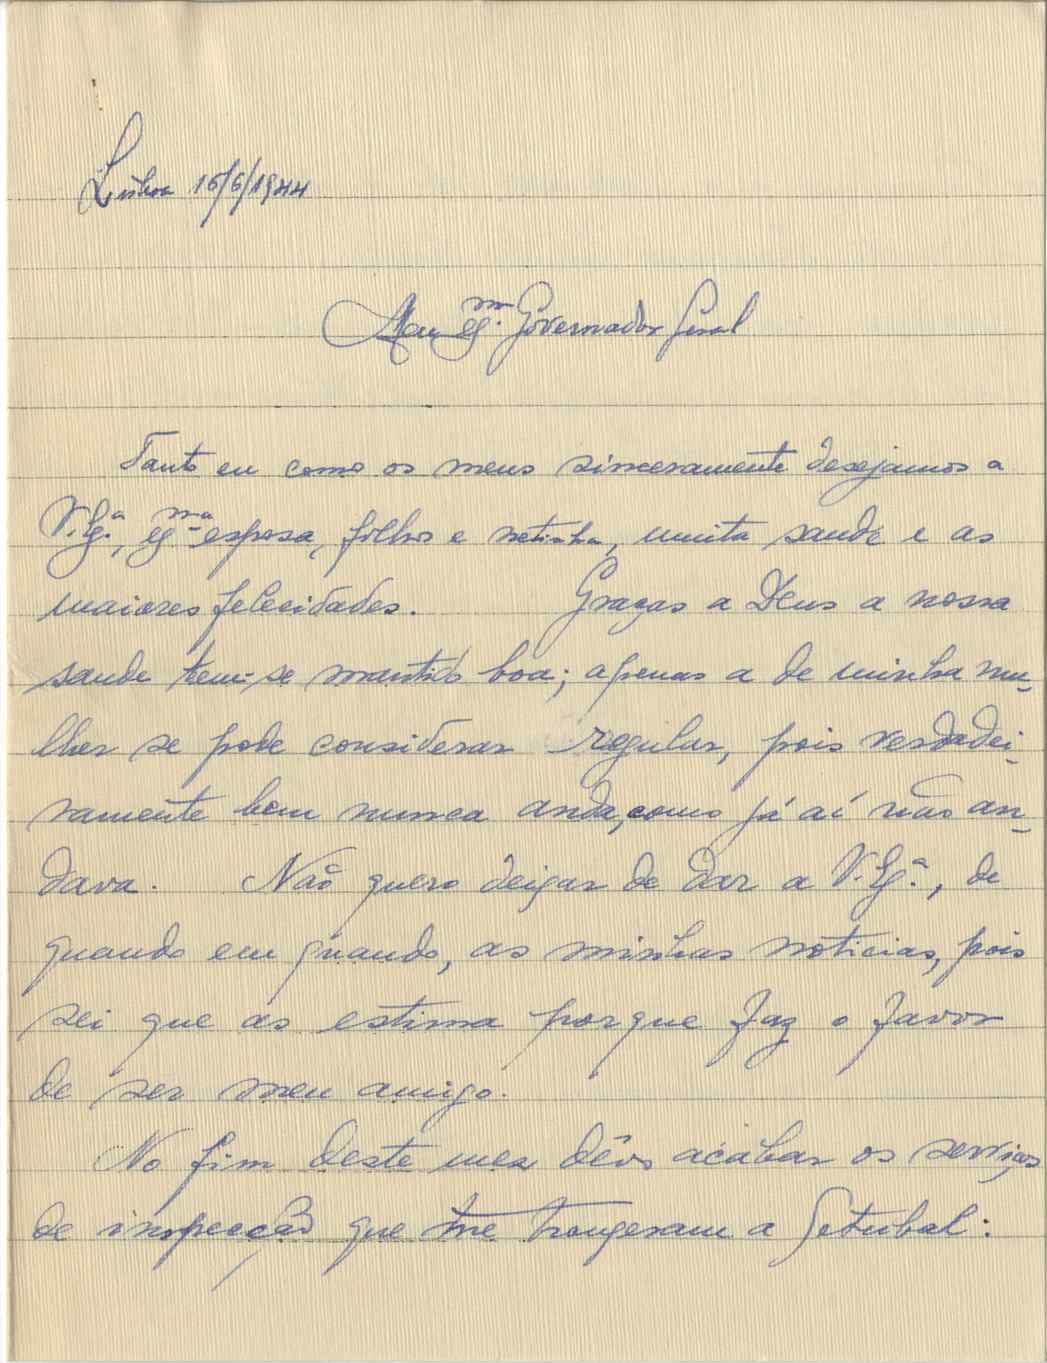 Lisboa 16/6/1944
Meu Ex.mo Governador Geral
Tanto eu como os meus sinceramente desejamos a
V. Ex.ª, Ex.ma esposa, filhos e netinha, muita saude e as
maiores felecidades. Graças a Deus a nossa
saude tem-se mantido boa; apenas a de minha mu-
lher se pode considerar regular, pois verdadei-
ramente bem nunca anda, como já aí não an-
dava. Não quero deixar de dar a V. Ex.ª, de
quando em quando, as minhas noticias, pois
sei que as estima porque faz o favor
de ser meu amigo.
No fim deste mez dêvo acabar os serviços
de inspecção que me trouxeram a Setubal: